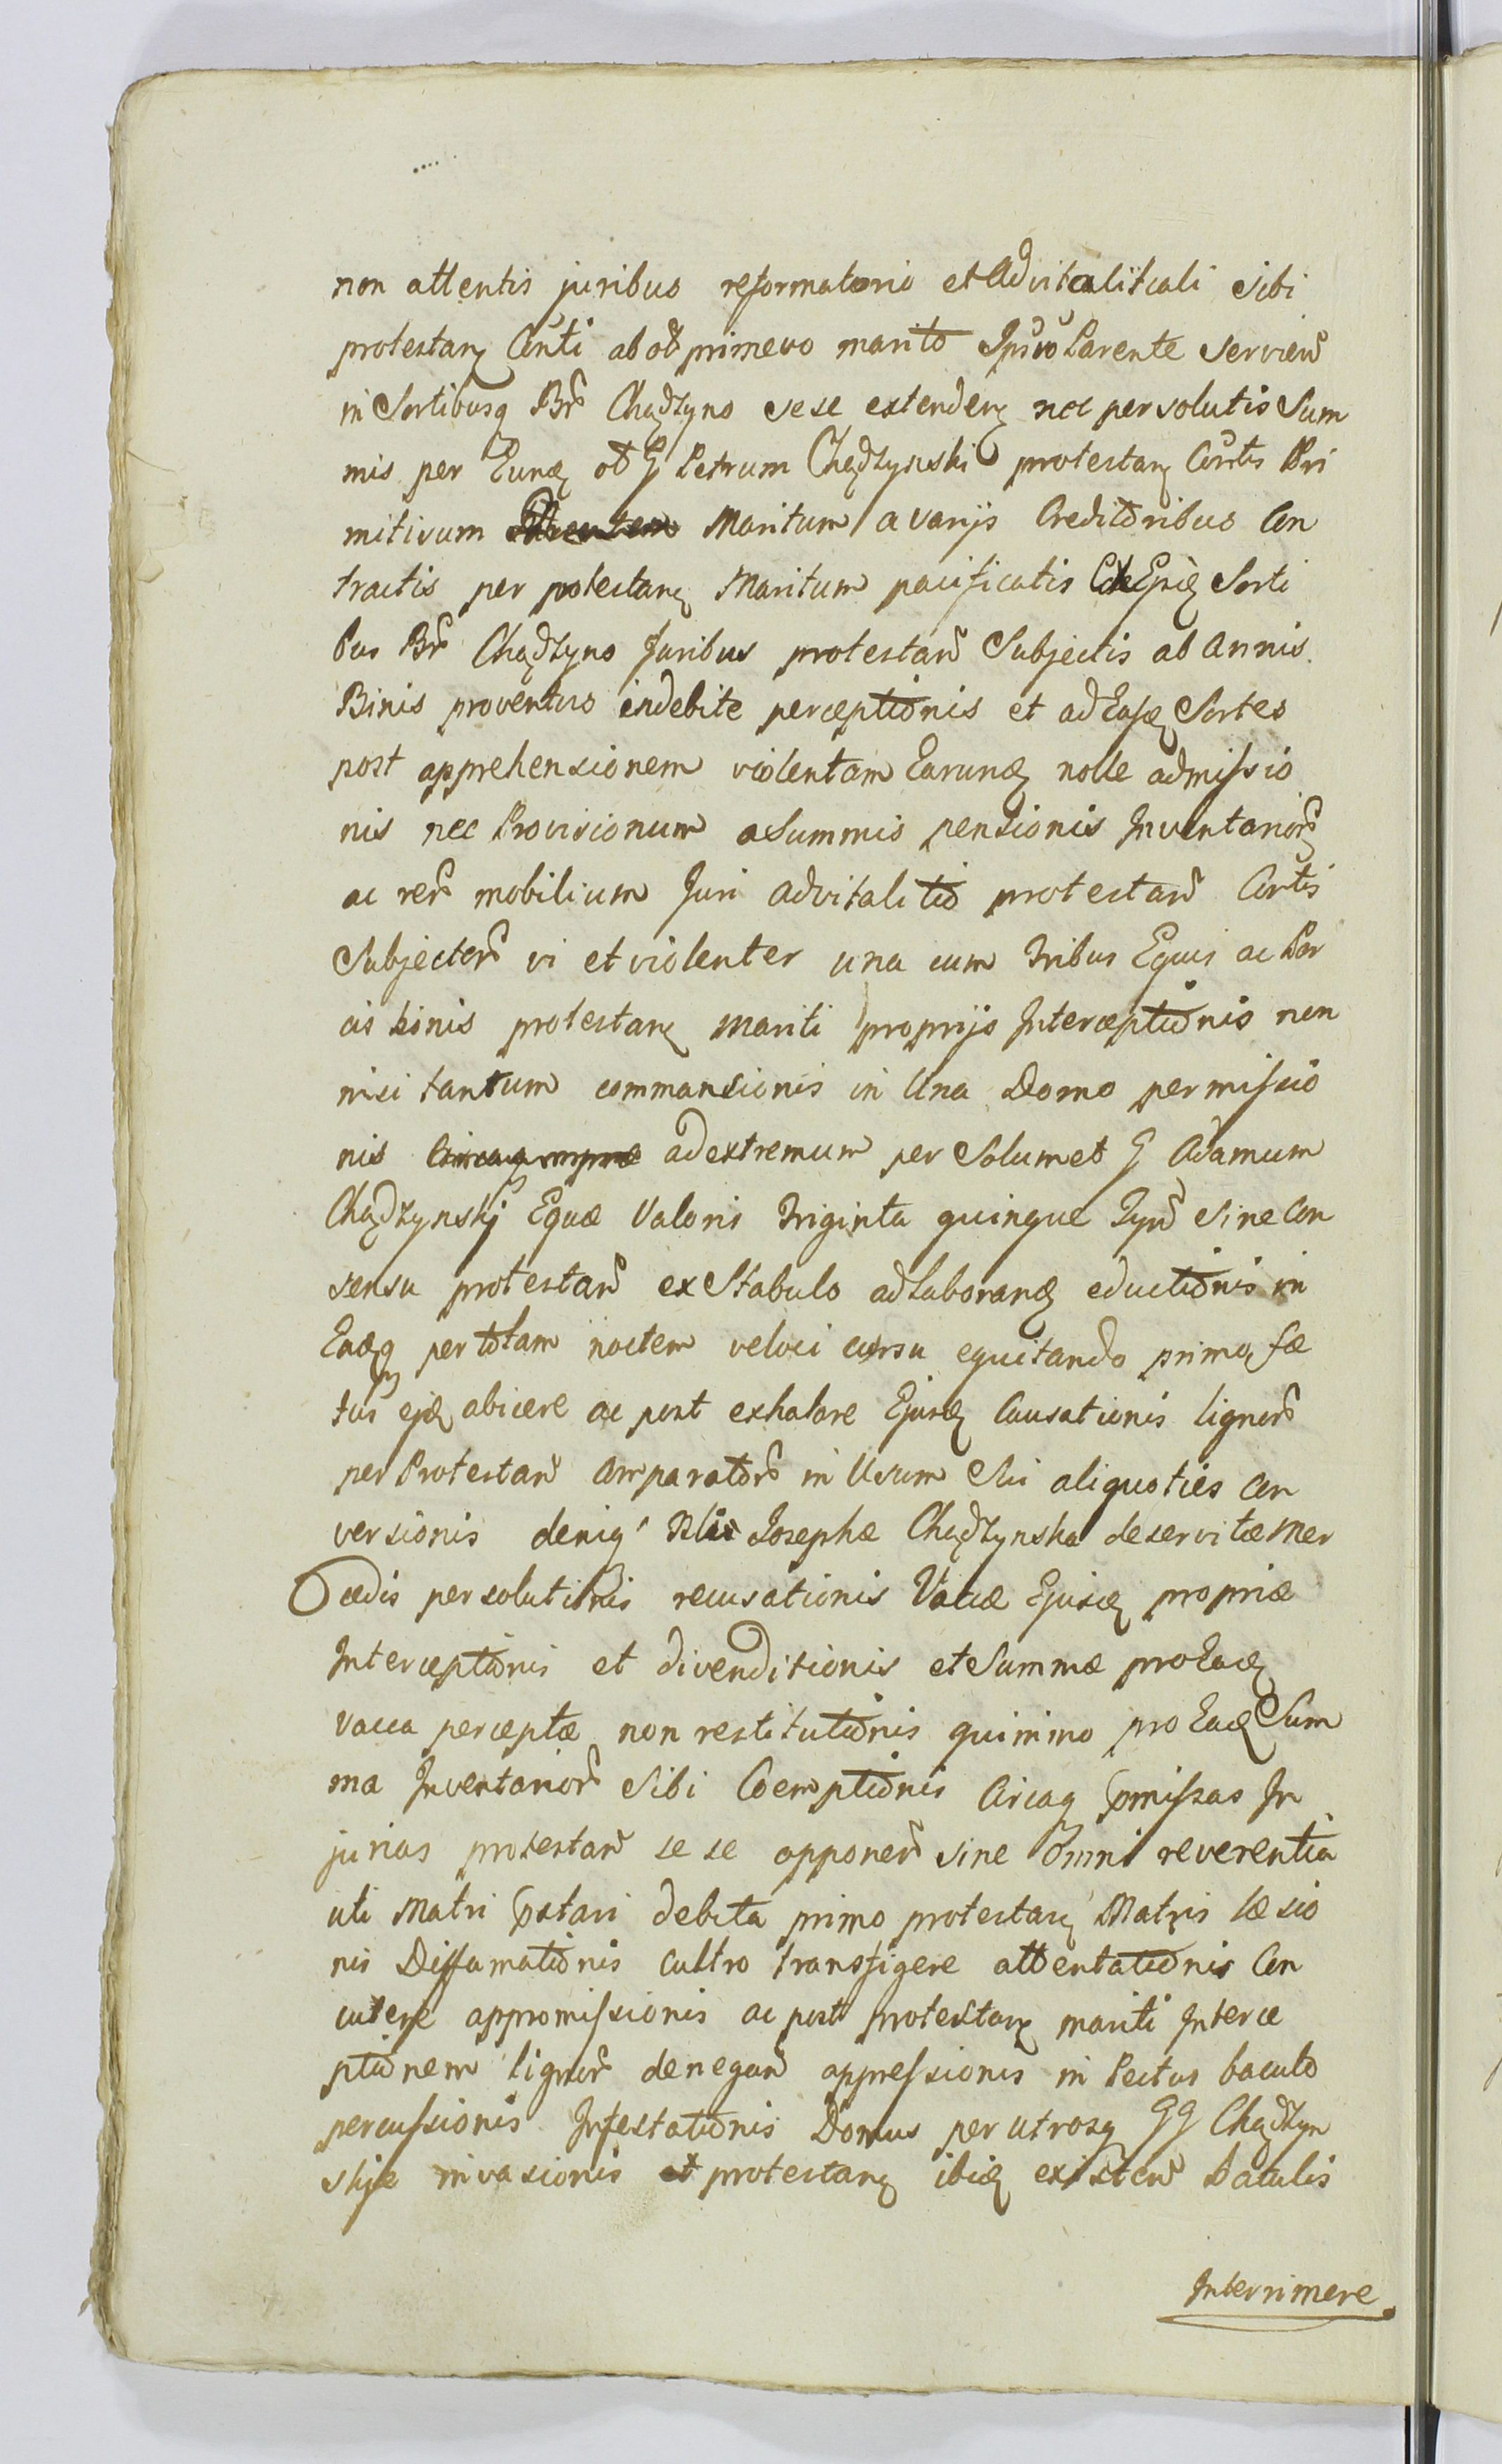 non attentis juribus reformatorio et Advitalitiali sibi
protestanꝫ Conti ab oƀ primevo marito Parente servien
in Sortibusq Br Chądzyno sese extendenꝫ nec persolutis Sum
mis per Eunꝫ oƀ G Petrum Chądzynski protestanꝫ Contis Pri
mitivum Maritum a varijs Creditoribus Con
tractis per protestanꝫ Maritum pacificatis Sorti
bus Br Chądzyno Juribus protestan Subjectis ab annis
Binis proventus indebite perceptionis et ad Easꝫ Sortes
post apprehensionem violentam Earunꝫ nolle admissio
nis nec Provisionum a Summis pensionis Inventarior
ac rer mobilium Juri advitalitio protestan Contis
Subjector vi et violenter una cum tribus Equis ac Por
cis binis protestanꝫ mariti proprijs Interceptionis non
nisi tantum commansionis in Una Domo permissio
nis ad extremum per Solum et G Adamum
Chądzynskj Equæ Valoris triginta quinque Tyn sine Con
sensu protestan ex Stabulo ad laboranꝫ eductionis in
Eaꝫq per totam noctem veloci cursu equitando primo fæ
tus ejꝫ abicere ac post exhalare Ejusꝫ Causationis lignor
per Protestan Comparator in Usum Sui aliquoties Con
versionis deniq Josephæ Chądzynska deservitæ Mer
cedis persolutionis recusationis Vaccæ Ejusꝫ propriæ
Interceptionis et divenditionis et Summæ pro Eaꝫ
vacca perceptæ non restitutionis quinimo pro Eaꝫ Sum
ma Inventarior Sibi Coemptionis Circaq præmissas In
jurias protestan se se opponen sine omni reverentia
uti Matri præstari debita primo protestanꝫ Matris læsio
nis Diffamationis cultro transfigere attentationis Con
cutere appromissionis ac post protestanꝫ mariti Interce
ptionem lignor denegan oppressionis in Pectus baculo
percussionis Infestationis Domus per utrosq GG Chądzyn
skje invasionis et protestanꝫ ibiꝫ existen baculis
Interimere